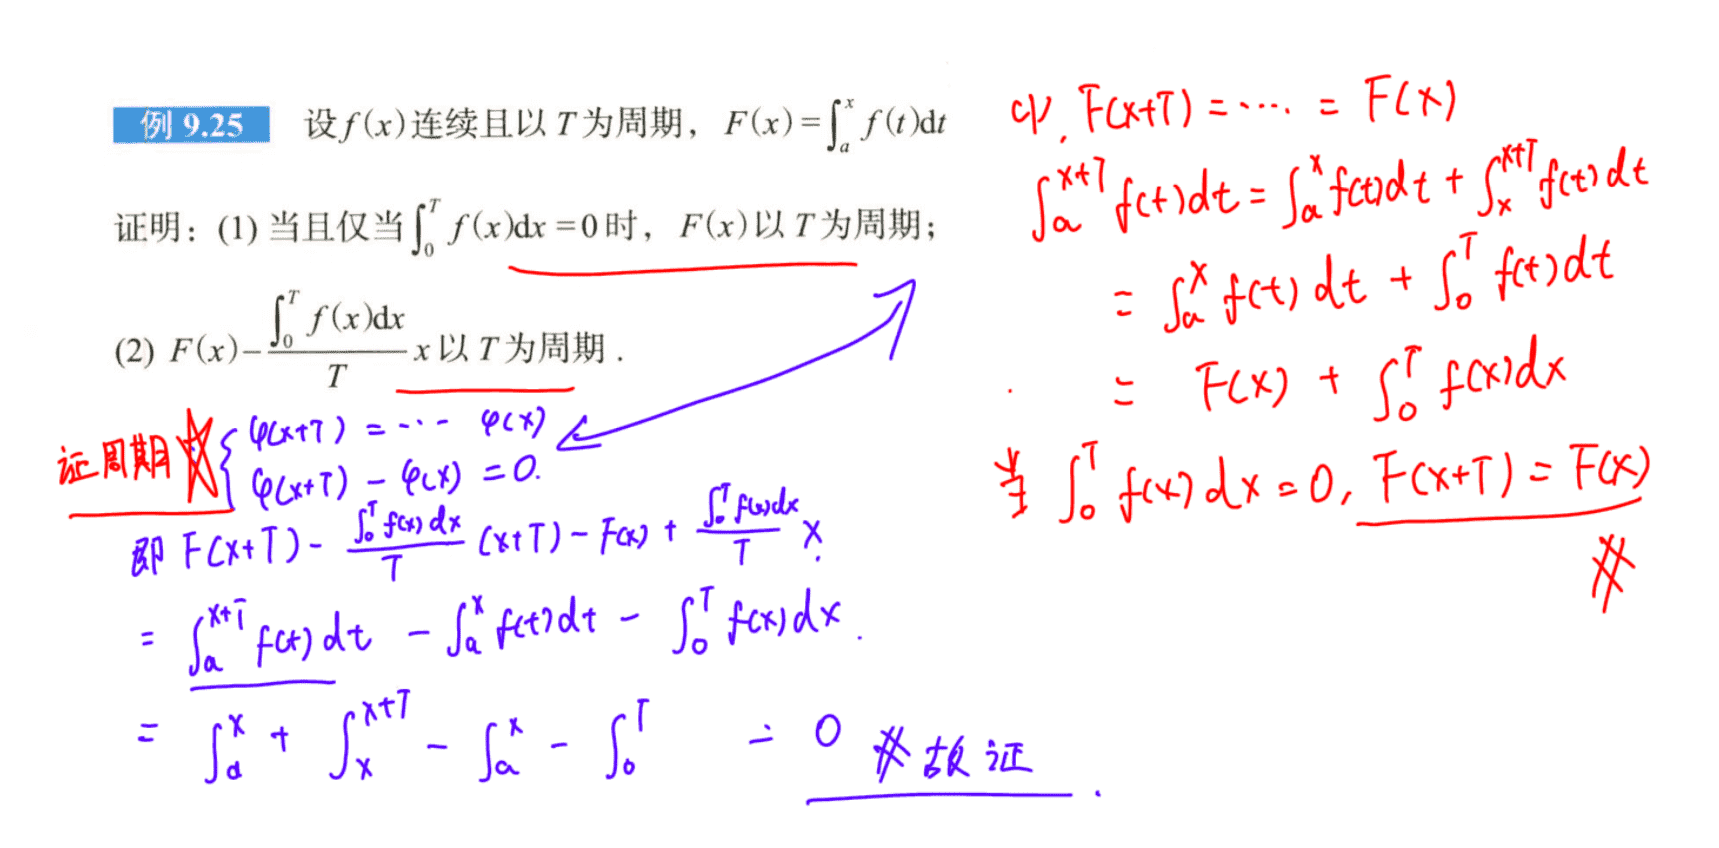 例 9.25 设f(x)连续且以T为周期，F(x)=∫_a^x f(t)dt
证明：(1) 当且仅当∫_0^T f(x)dx=0时，F(x)以T为周期；
(2) F(x)-\frac{∫_0^T f(x)dx}{T}x以T为周期．
证周期 { φ(x+T) = ··· φ(x)
φ(x+T) - φ(x) = 0.
即 F(x+T) - \frac{∫_0^T f(x)dx}{T}(x+T) - F(x) + \frac{∫_0^T f(x)dx}{T} x.
= ∫_a^{x+T} f(t)dt - ∫_a^x f(t)dt - ∫_0^T f(x)dx.
= ∫_a^x + ∫_x^{x+T} - ∫_a^x - ∫_0^T = 0 # 故证.
(1), F(x+T) = ···· = F(x)
∫_a^{x+T} f(t)dt = ∫_a^x f(t)dt + ∫_x^{x+T} f(t)dt
= ∫_a^x f(t)dt + ∫_0^T f(t)dt
= F(x) + ∫_0^T f(x)dx
当 ∫_0^T f(x)dx = 0, F(x+T) = F(x)
#